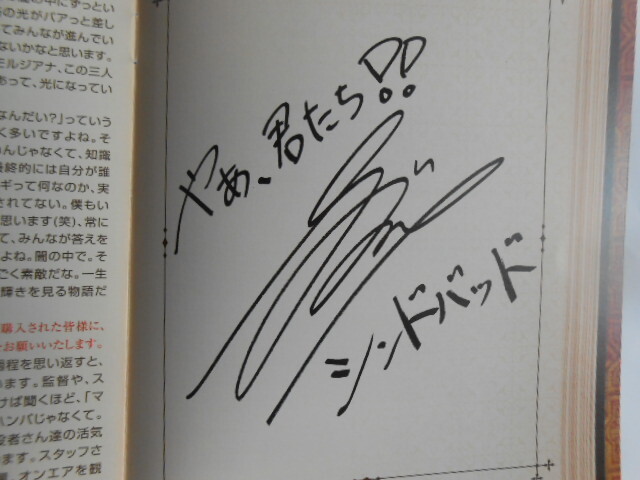 やあ、君たち!!
シンドバッド
中にずっとい
の光がパアっと差し
てみんなが進んでい
ないかなと思います。
ミルジアナ、この三人
あって、光になってい
なんだい?」っていう
く多いですよね。そ
んじゃなくて、知識
最終的には自分が誰
ギって何なのか、実
されてない。僕もい
思います(笑)、常に
て、みんなが答えを
よね。闇の中で。そ
ごく素敵だな。一生
輝きを見る物語だ
購入された皆様に、
をお願いいたします。
過程を思い返すと、
います。監督や、ス
けば聞くほど、「マ
ハンパじゃなくて。
役者さん達の活気
ます。スタッフさ
オンエアを観